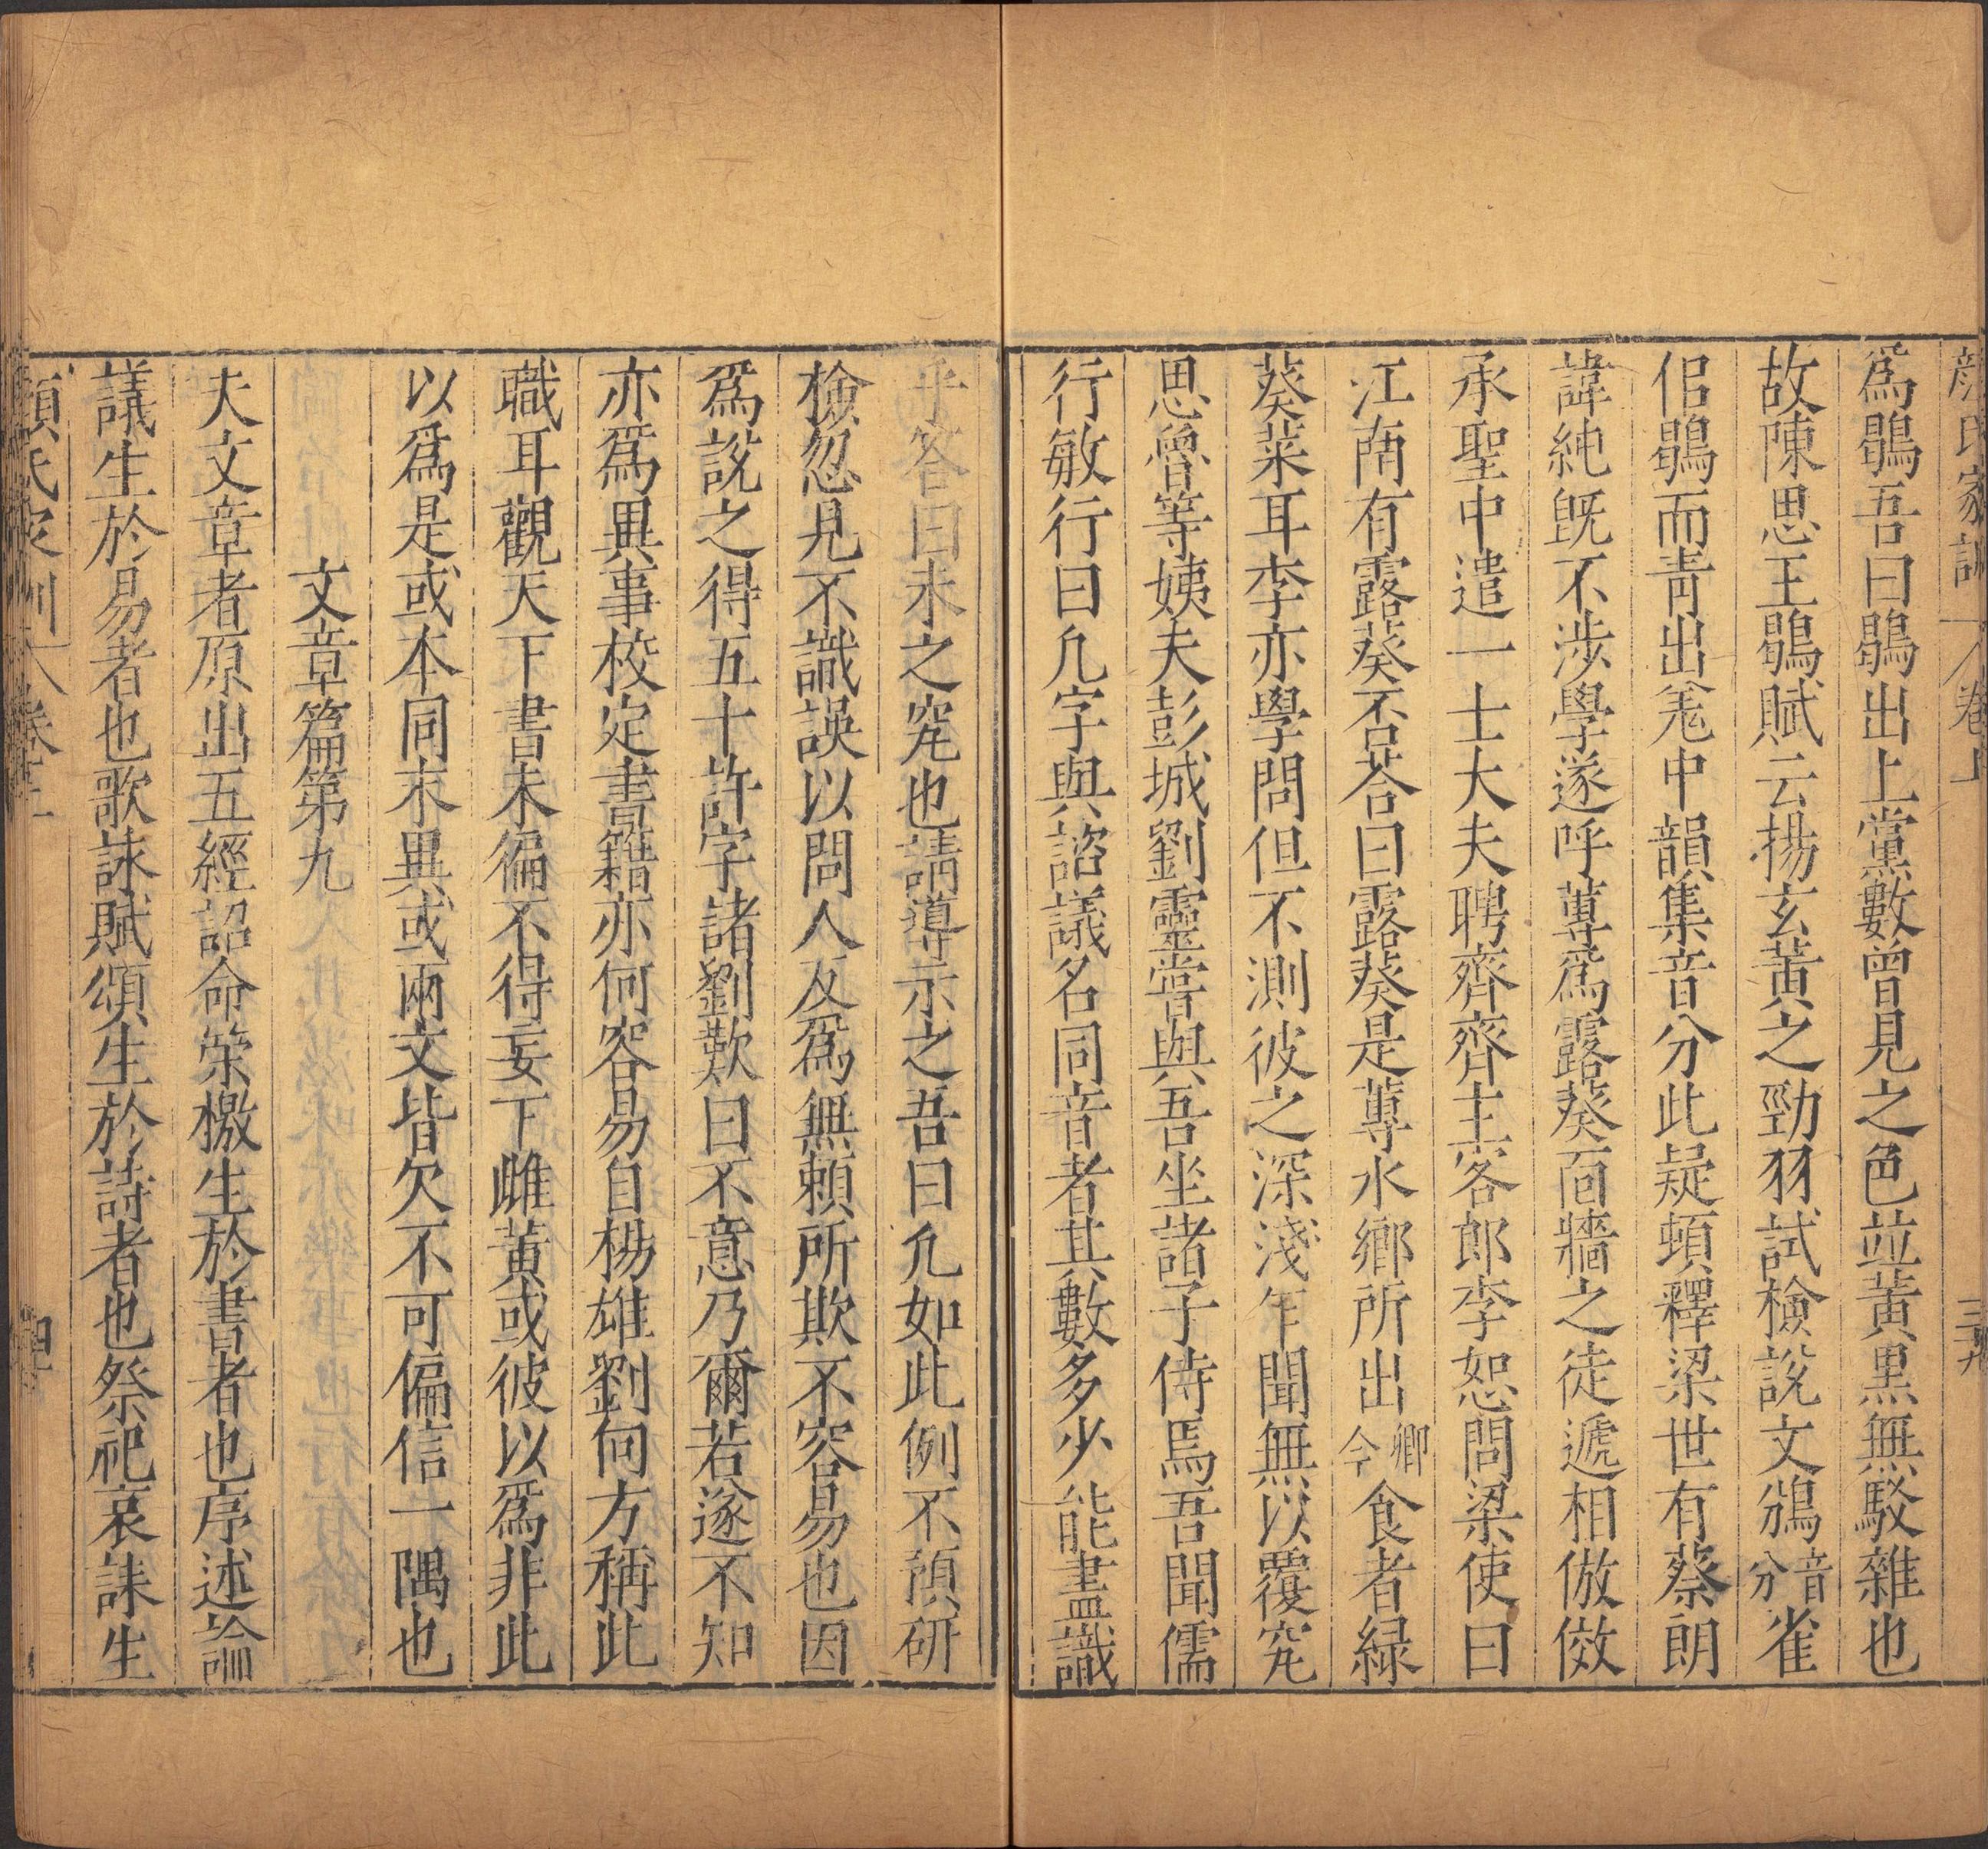 顔氏家訓 卷上 三十九
爲鶡吾曰鶡出上黨數曾見之色竝黃黑無駁雜也
故陳思王鶡賦云揚玄黃之勁羽試檢說文鳻音分雀
侣鶡而青出羌中韻集音分此疑頓釋梁世有蔡朗
諱純旣不涉學遂呼蓴爲露葵靣牆之徒遞相倣傚
承聖中遣一士大夫聘齊齊主客郎李恕問梁使曰
江南有露葵否荅曰露葵是蓴水鄉所出卿今食者緑
葵菜耳李亦學問但不測彼之深淺乍聞無以覆究
思魯等姨夫彭城劉靈嘗與吾坐諸子侍焉吾問儒
行敏行曰凢字與諮議名同音者其數多少能盡識
乎答曰未之究也請導示之吾曰凢如此例不預研
檢忽見不識誤以問人反爲無賴所欺不容易也因
爲說之得五十許字諸劉歎曰不意乃爾若遂不知
亦爲異事校定書籍亦何容易自楊雄劉向方稱此
職耳觀天下書未徧不得妄下雌黃或彼以爲非此
以爲是或本同末異或兩文皆欠不可偏信一隅也
文章篇第九
夫文章者原出五經詔命策檄生於書者也序述論
議生於易者也歌詠賦頌生於詩者也祭祀哀誄生
顔氏家訓 卷上 四十